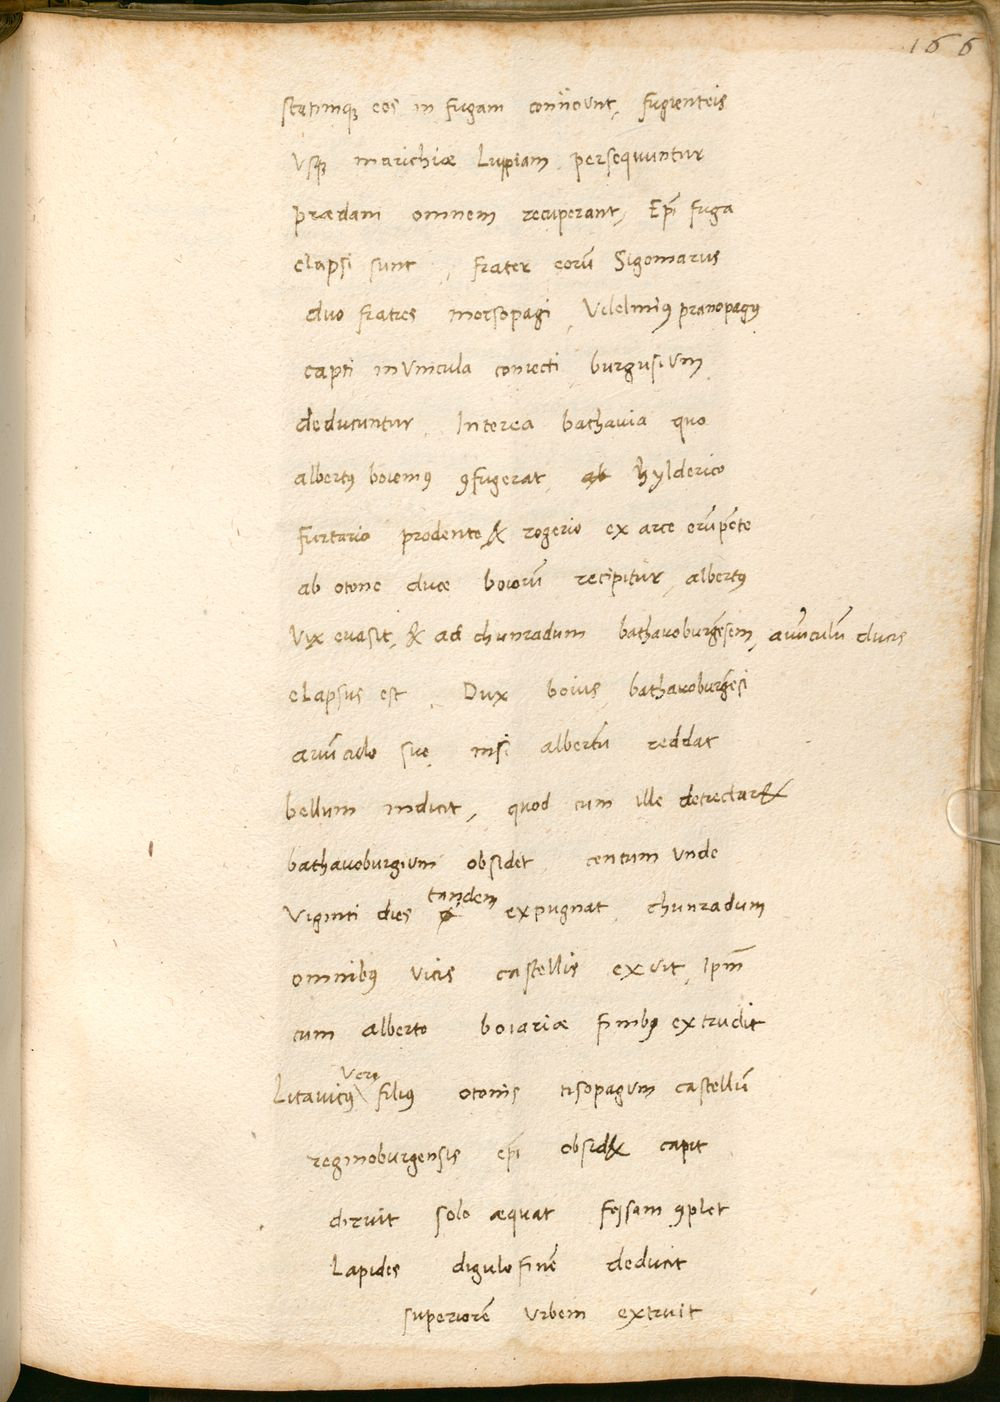 166
statimq; eos in fugam coniiciunt, fugienteis
Vsq; marichiæ Luppiam persequuntur
prædam omnem recuperant, Epĩ fuga
elapsi sunt, frater eorũ Sigomarus
duo fratres morsopagi, Vdelmiꝰ pranopagꝰ
capti in Vincula coniecti burgusiũm
deducuntur. Interea bathauia quo
albertꝰ boiemꝰ ꝯfugerat, ab hylderico
furtario prodente & rogerio ex arce erũpẽte
ab otone duce boiorũ recipitur, albertꝰ
Vix euasit, & ad chunradum bathauoburgẽsem, auũculũ ducis
elapsus est. Dux boius bathauoburgẽsi
auũculo suo, nisi albertũ reddat
bellum indicit, quod cum ille detrectar&
bathauoburgium obsidet centum unde
Viginti dies tandem expugnat chunradum
omnibꝰ vicis castellis exuit, Ipm̃
cum alberto boiariæ finibꝰ extrudit
Litauicꝰ Vero filiꝰ otonis tisopagum castellũ
reginoburgensis epĩ obsid& capit
diruit solo æquat fossam ꝯplet
Lapides digulofinẽ deducit
superiorẽ Vrbem extruit